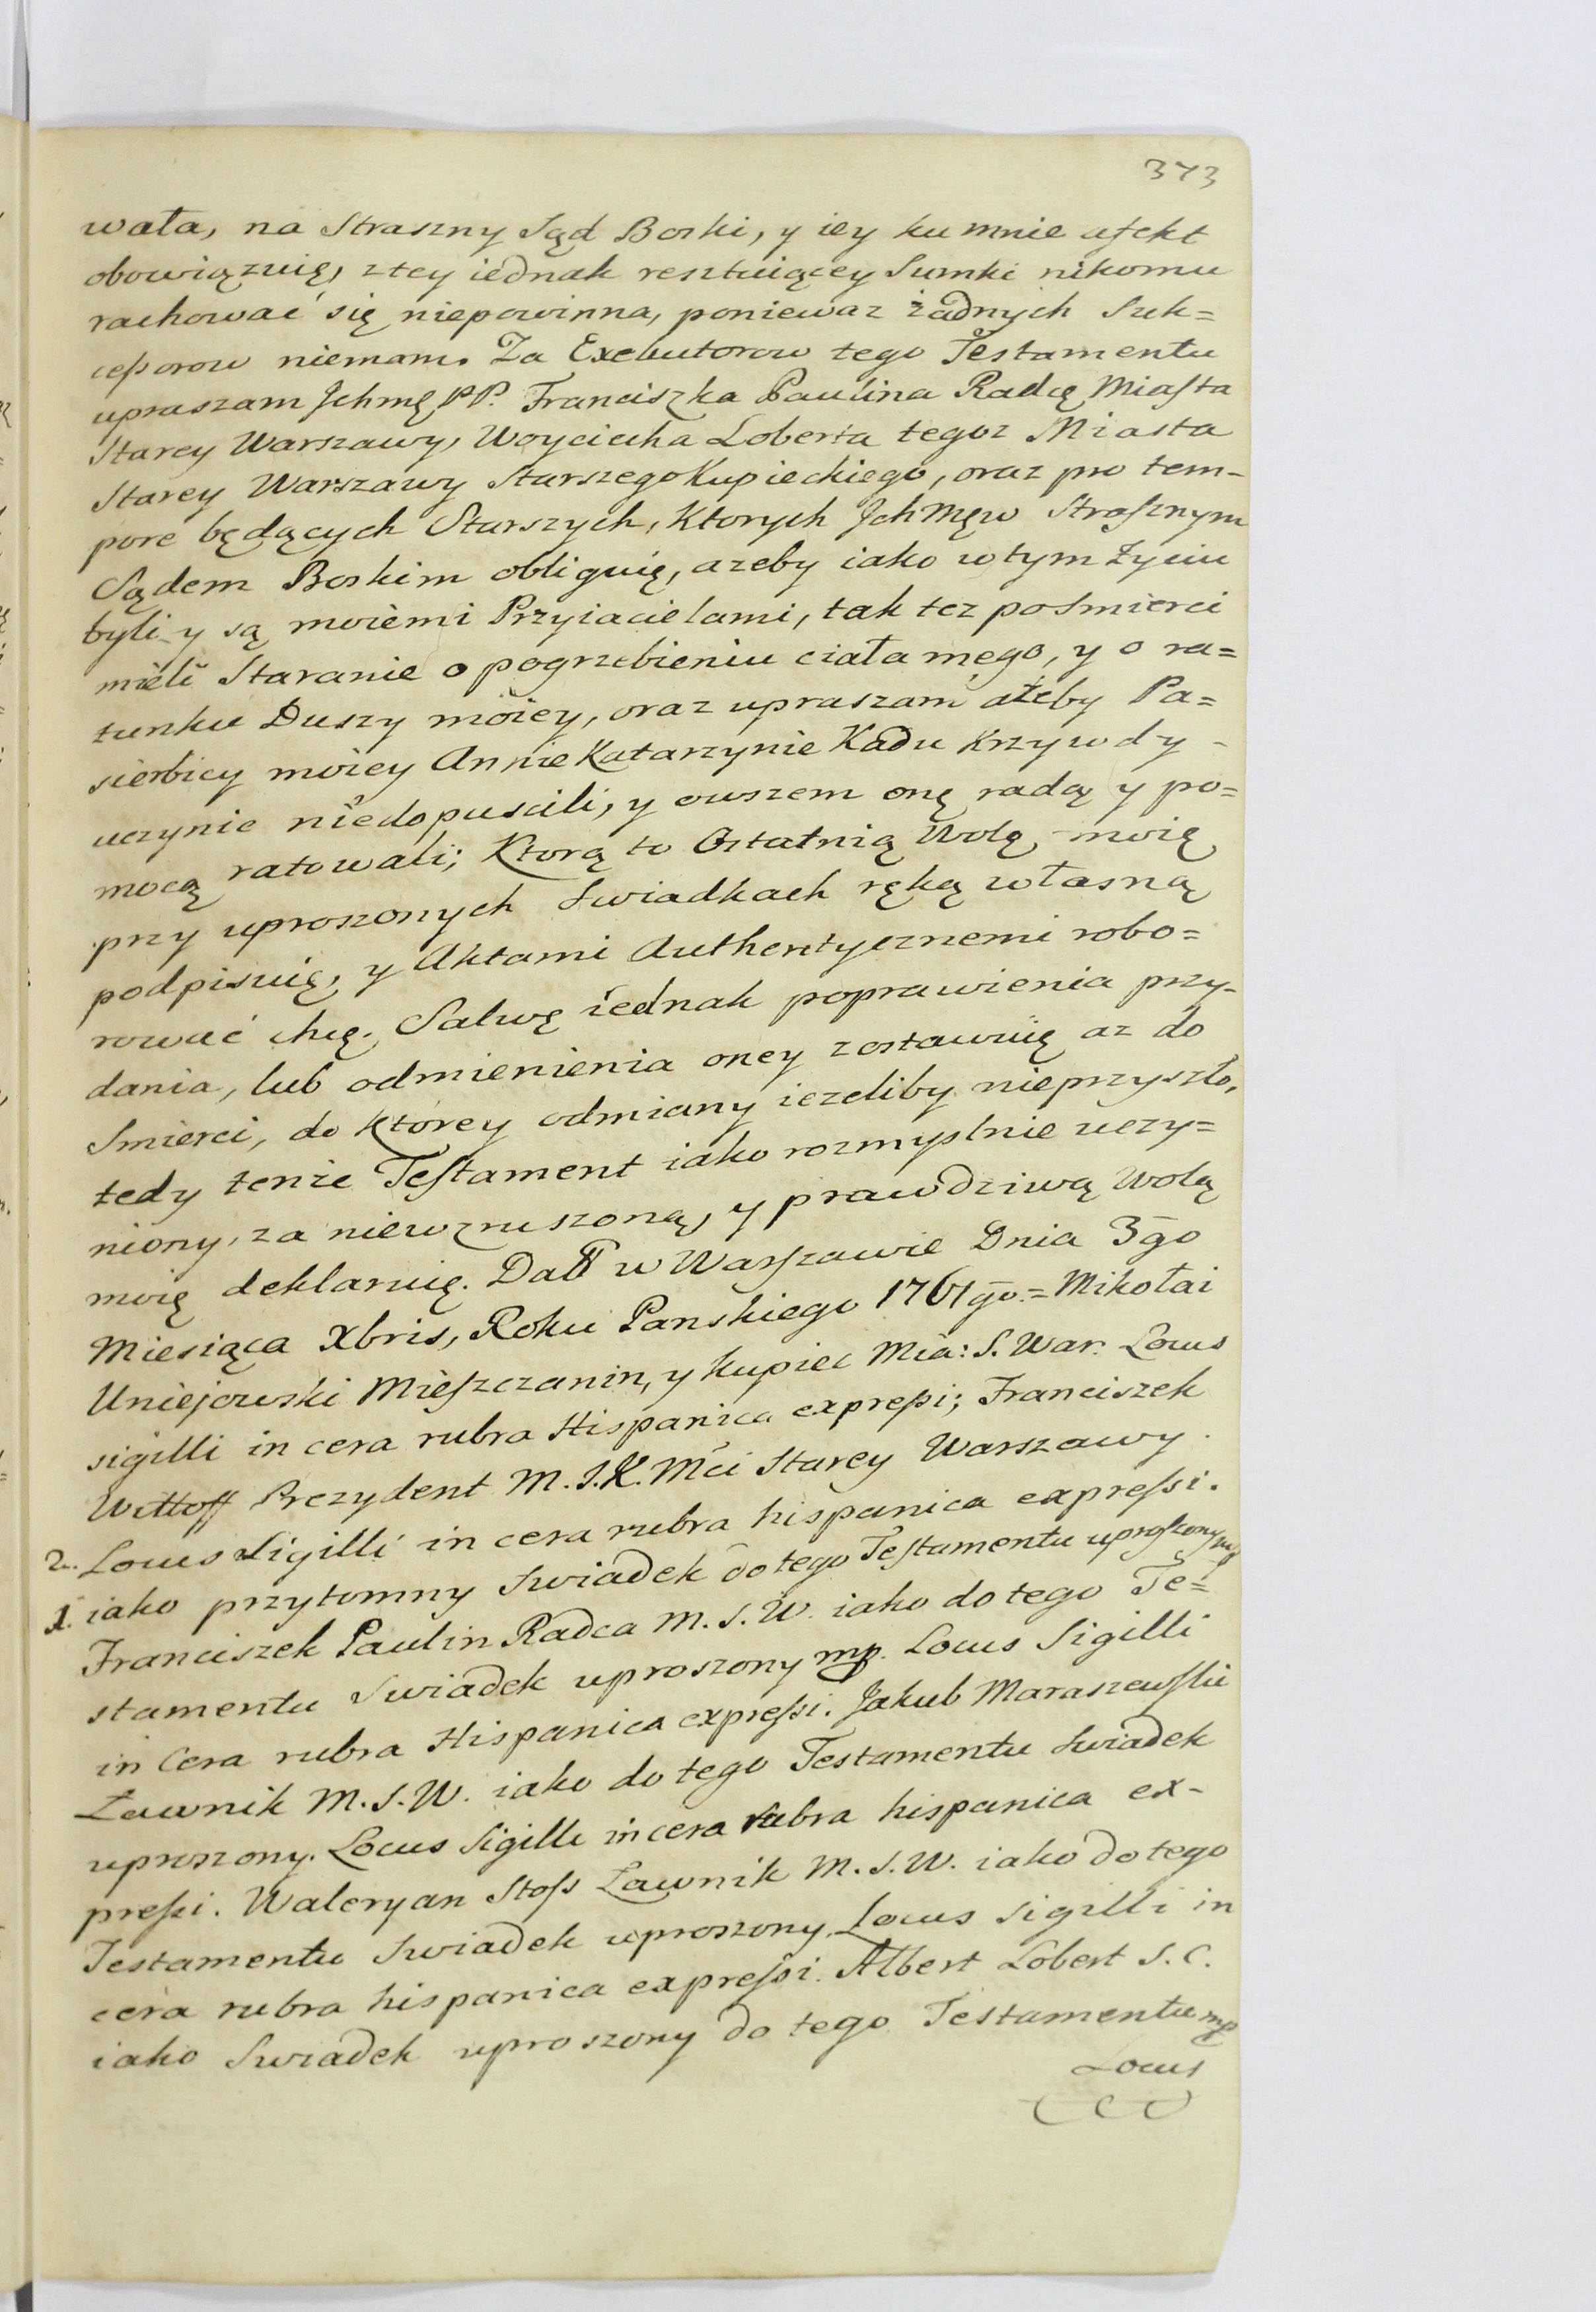 373
wała, na Straszny Sąd Boski, y iey ku mnie afekt
obowiązuię, z tey iednak resztuiącey Sumki nikomu
rachować się niepowinna, poniewaz żadnych Suk=
ceſsorow niemam. Za Exekutorow tego Testamentu
upraszam Ichmę PP. Franciszka Paulina Radcę Miaſta
Starey Warszawy, Woyciecha Loberta tegoz Miasta
Starey Warszawy Starszego Kupieckiego, oraz pro tem-
pore będących Starszych, Ktorych Ich Męw Straſznym
Sądem Boskim obliguię, azeby iako w tym Życiu
byli y są moiemi Przyiacielami, tak tez po Smierci
mieli Staranie o pogrzebieniu ciała mego, y o ra=
tunku Duszy moiey, oraz upraszam ażeby Pa=
sierbicy moiey Annie Katarzynie Kadu Krzywdy -
uczynic niedopuscili, y owszem onę radą y po=
mocą ratowali; Ktorą to Ostatnią Wolę moię
przy uproszonych Swiadkach ręką własną
podpisuię, y Aktami Authentycznemi robo=
rować chcę. Salwę iednak poprawienia przy-
dania, lub odmienienia oney zostawuię az do
Smierci, do Ktorey odmiany iezeliby nieprzyszło,
tedy tenze Teſtament iako rozmyslnie uczy=
niony, za niewzruszoną, y prawdziwą Wolą
moię deklaruię. Datt w Warſzawie Dnia 3go
Miesiąca Xbris, Roku Panskiego 1761go.= Mikołai
Uniejowski Mieſzczanin, y Kupiec Mia: S. War. Locus
sigilli in cera rubra Hispanica expreſsi; Franciszek
Wittoff Prezydent M. J. K. Mci Starey Warszawy.
2. Locus Sigilli in cera rubra hispanica expreſsi.
1. iako przytomny Swiadek do tego Teſtamentu uproſzony mp
Franciszek Paulin Radca M. S. W. iako do tego Te=
stamentu Swiadek uproszony mp. Locus Sigilli
in Cera rubra Hispanica expreſsi. Jakub Maraszewſki
Ławnik M. S. W. iako do tego Testamentu Swiadek
uproszony. Locus Sigilli in cera rubra hispanica ex-
preſsi. Waleryan Stoſs Ławnik M. S. W. iako do tego
Testamentu Swiadek uproszony. Locus sigilli in
cera rubra hispanica expreſsi. Albert Lobert S. C.
iako Swiadek uproszony do tego Testamentu mp
Locus